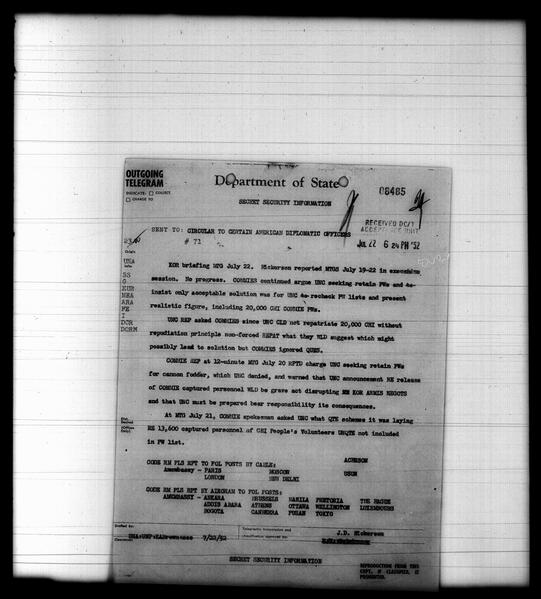 OUTGOING
TELEGRAM
INDICATE: COLLECT
CHARGE TO
Department of State
08485
SECRET SECURITY INFORMATION
RECEIVED DC/T
JUL 22 6 24 PM '52
SENT TO: CIRCULAR TO CERTAIN AMERICAN DIPLOMATIC OFFICERS
# 71
Origin
UNA
Info
SS
G
EUR
NEA
ARA
FE
I
DCR
DCRM
KOR BRIEFING MTG July 22. Hickerson reported MTGS July 19-22 in executive
session. No progress. COMMIES continued argue UNC seeking retain PWs and
insist only acceptable solution was for UNC recheck PW lists and present
realistic figure, including 20,000 CHI COMMIE PWs.
UNC REP asked COMMIES since UNC CLD not repatriate 20,000 CHI without
repudiation principle non-forced REPAT what they WLD suggest which might
possibly lead to solution but COMMIES ignored QUES.
COMMIE REP at 12-minute MTG July 20 RPTD charge UNC seeking retain PWs
for cannon fodder, which UNC denied, and warned that UNC announcement RE release
of COMMIE captured personnel WLD be grave act disrupting KOR ARMIS NEGOTS
and that UNC must be prepared bear responsibility its consequences.
At MTG July 21, COMMIE spokesman asked UNC what QTE schemes it was laying
RE 13,600 captured personnel of CHI People's Volunteers UNQTE not included
in PW list.
ACHESON
CODE RM PLS RPT TO FOL POSTS BY CABLE:
Amembassy - PARIS MOSCOW USUN
LONDON NEW DELHI
CODE RM PLS RPT BY AIRGRAM TO FOL POSTS:
AMEMBASSY - ANKARA BRUSSELS MANILA PRETORIA THE HAGUE
ADDIS ABABA ATHENS OTTAWA WELLINGTON LUXEMBOURG
BOGOTA CANBERRA PUSAN TOKYO
Drafted by:
7/22/52
Telegraphic transmission and
classification approved by:
J.D. Hickerson
Clearances:
SECRET SECURITY INFORMATION
REPRODUCTION FROM THIS
COPY, IF CLASSIFIED, IS
PROHIBITED.